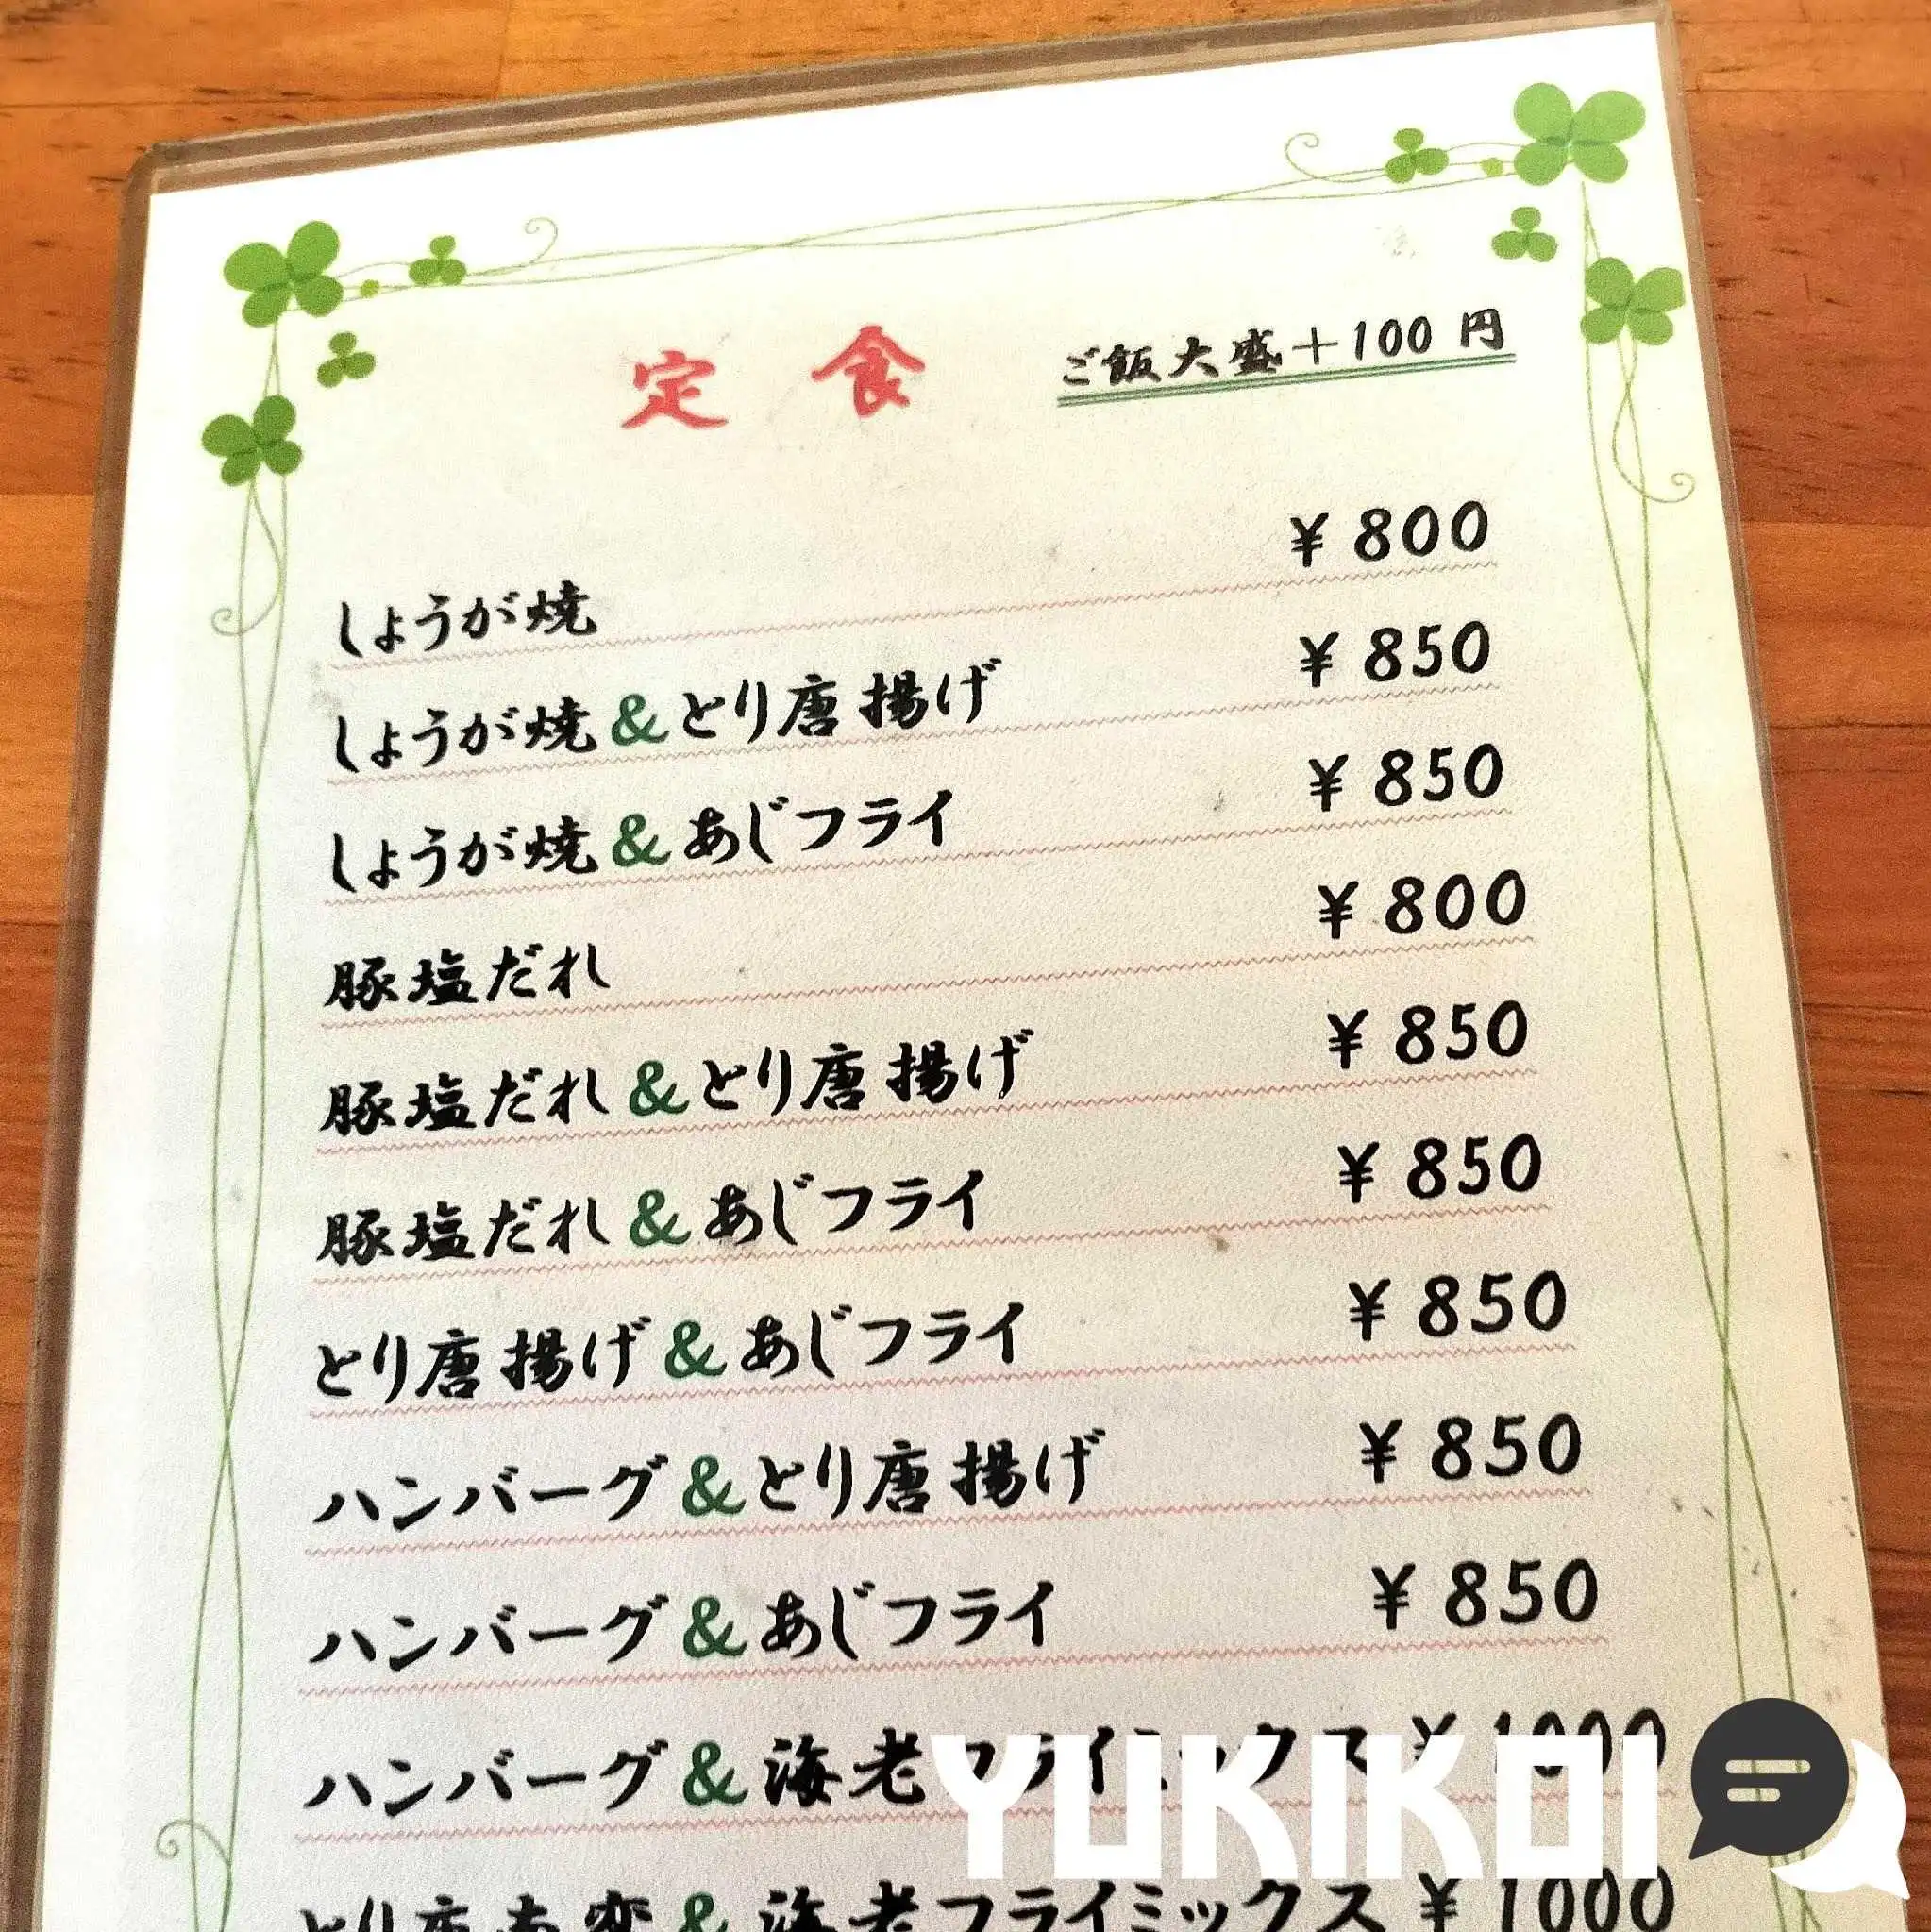 定食 ご飯大盛+100円
しょうが焼 ¥800
しょうが焼&とり唐揚げ ¥850
しょうが焼&あじフライ ¥850
豚塩だれ ¥800
豚塩だれ&とり唐揚げ ¥850
豚塩だれ&あじフライ ¥850
とり唐揚げ&あじフライ ¥850
ハンバーグ&とり唐揚げ ¥850
ハンバーグ&あじフライ ¥850
ハンバーグ&海老フライミックス ¥1000
YUKIKOI
&海老フライミックス ¥1000